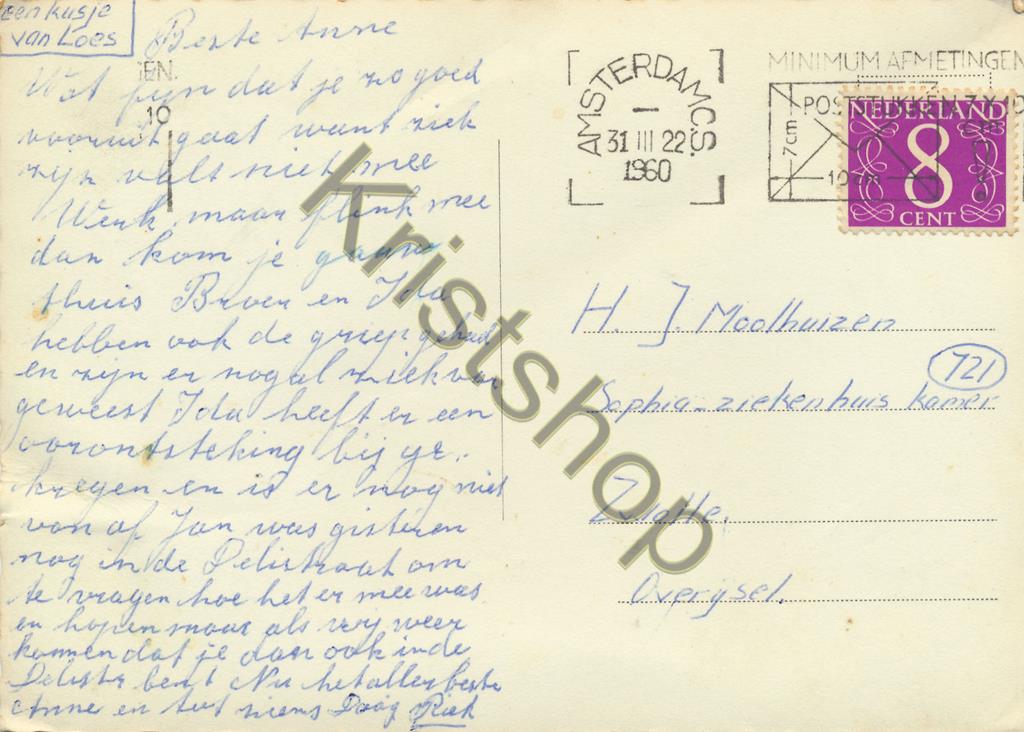 een kusje
van Loes
Beste Anne
Wat fijn dat je zo goed
vooruit gaat want ziek
zijn valt niet mee
Werk maar flink mee
dan kom je gauw
thuis Broer en Ida
hebben ook de griep gehad
en zijn er nogal ziek van
geweest Ida heeft er een
oorontsteking bij ge-
kregen en is er nog niet
van af Jan was gisteren
nog in de Delistraat om
te vragen hoe het er mee was
en hopen maar als wij weer
komen dat je dan ook in de
Delistr bent Nu het allerbeste
Anne en tot ziens Daag Riek
EN.
10
AMSTERDAM C.S.
31 III 22
1960
MINIMUM AFMETINGEN
POSTSTUKKEN 7 X 10
cm
7 cm
10 cm
NEDERLAND
8
CENT
H. J. Moolhuizen
721
Sophia-ziekenhuis kamer
Zwolle.
Overijsel.
Kristshop